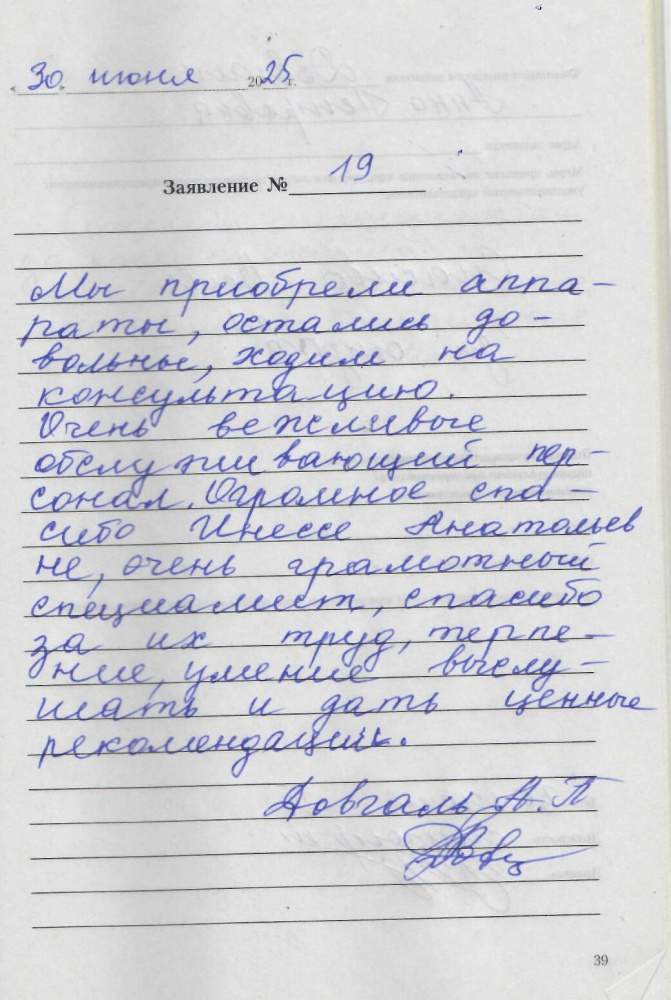 « 30 » июня 2025 г.
Заявление № 19
Мы приобрели аппа-
раты, остались до-
вольны, ходим на
консультацию.
Очень вежливые
обслуживающий пер-
сонал. Огромное спа-
сибо Инессе Анатольев
не, очень грамотный
специалист, спасибо
за их труд, терпе-
ние, умение выслу-
шать и дать ценные
рекомендации.
Довгаль А.П
39